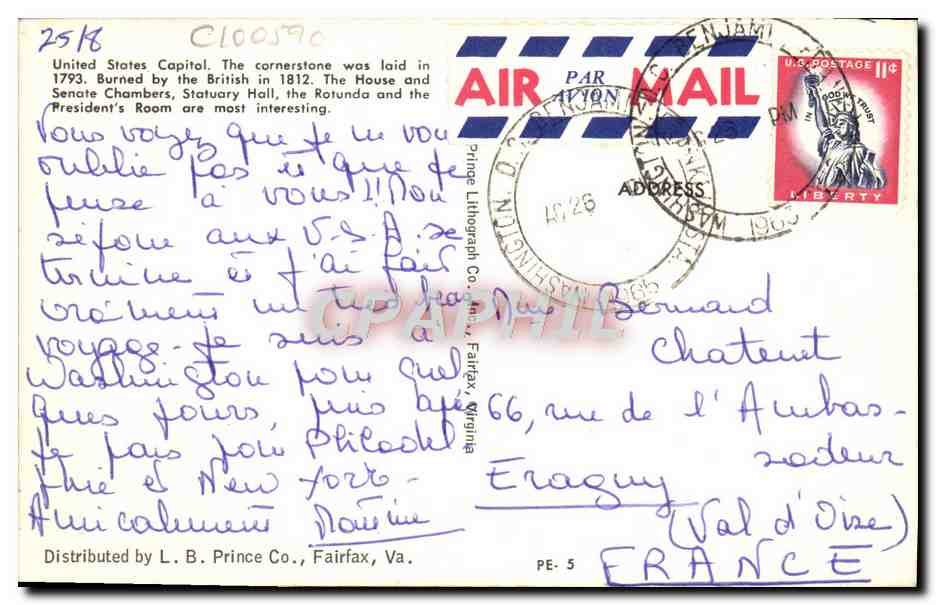 25/8
C100590
United States Capital. The cornerstone was laid in
1793. Burned by the British in 1812. The House and
Senate Chambers, Statuary Hall, the Rotunda and the
President's Room are most interesting.
Vous voyez que je ne vous
oublie pas et que je
pense à vous!! Mon
séjour aux U.S.A. se
termine et j'ai fait
vraiment un très beau
voyage. Je suis à
Washington pour quel
ques jours, puis après
je pars pour Philadel
phie et New-York.
Amicalement
Distributed by L. B. Prince Co., Fairfax, Va.
PE- 5
Prince Lithograph Co., Inc., Fairfax, Virginia
AIR MAIL
PAR
AVION
ADDRESS
U.S. POSTAGE 11¢
IN GOD WE TRUST
LIBERTY
WASHINGTON, D.C.
BENJAMIN
AUG 26
PM
Bernard
Chatenet
66, rue de l'Ambas-
sadeur
Eragny
(Val d'Oise)
FRANCE
CPAPHIL